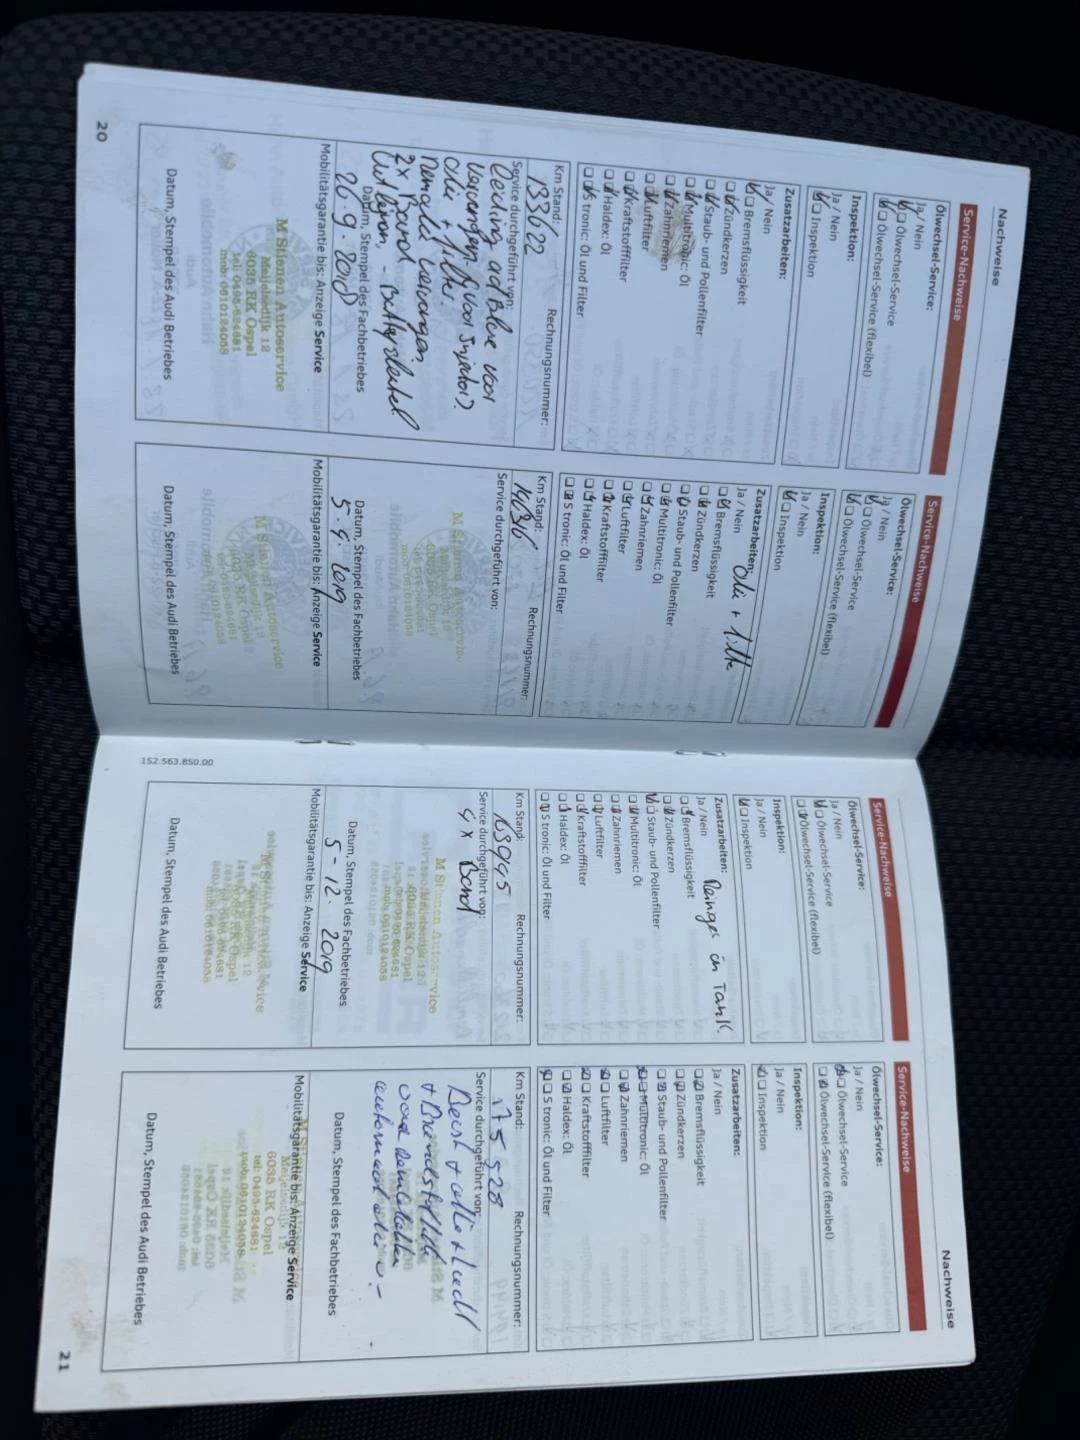 Nachweise
Service-Nachweise
Ölwechsel-Service:
Ja / Nein
Ölwechsel-Service
Ölwechsel-Service (flexibel)
Inspektion:
Ja / Nein
Inspektion
Zusatzarbeiten:
Ja / Nein
Bremsflüssigkeit
Zündkerzen
Staub- und Pollenfilter
Multitronic: Öl
Zahnriemen
Luftfilter
Kraftstofffilter
Haldex: Öl
S tronic: Öl und Filter
Km Stand: Rechnungsnummer:
133622
Service durchgeführt von:
Leiding adBlue voor
vervangen (voor Injector).
olie + filter.
remolie vervangen.
2x Band
Datum, Stempel des Fachbetriebes
26.9.2018
Mobilitätsgarantie bis: Anzeige Service
M Sienen Autoservice
Meijelsedijk 12
6035 RK Ospel
tel: 0495-624681
mob: 0610124058
Datum, Stempel des Audi Betriebes
20
Service-Nachweise
Ölwechsel-Service:
Ja / Nein
Ölwechsel-Service
Ölwechsel-Service (flexibel)
Inspektion:
Ja / Nein
Inspektion
Zusatzarbeiten: Olie + filter
Ja / Nein
Bremsflüssigkeit
Zündkerzen
Staub- und Pollenfilter
Multitronic: Öl
Zahnriemen
Luftfilter
Kraftstofffilter
Haldex: Öl
S tronic: Öl und Filter
Km Stand: Rechnungsnummer:
Service durchgeführt von:
Datum, Stempel des Fachbetriebes
5-9-2019
Mobilitätsgarantie bis: Anzeige Service
Datum, Stempel des Audi Betriebes
152.563.850.00
Service-Nachweise
Ölwechsel-Service:
Ja / Nein
Ölwechsel-Service
Ölwechsel-Service (flexibel)
Inspektion:
Ja / Nein
Inspektion
Zusatzarbeiten: Reinger in Tank
Ja / Nein
Bremsflüssigkeit
Zündkerzen
Staub- und Pollenfilter
Multitronic: Öl
Zahnriemen
Luftfilter
Kraftstofffilter
Haldex: Öl
S tronic: Öl und Filter
Km Stand: Rechnungsnummer:
Service durchgeführt von:
4x Band
Datum, Stempel des Fachbetriebes
5-12-2019
Mobilitätsgarantie bis: Anzeige Service
Datum, Stempel des Audi Betriebes
Nachweise
Service-Nachweise
Ölwechsel-Service:
Ja / Nein
Ölwechsel-Service
Ölwechsel-Service (flexibel)
Inspektion:
Ja / Nein
Inspektion
Zusatzarbeiten:
Ja / Nein
Bremsflüssigkeit
Zündkerzen
Staub- und Pollenfilter
Multitronic: Öl
Zahnriemen
Luftfilter
Kraftstofffilter
Haldex: Öl
S tronic: Öl und Filter
Km Stand: Rechnungsnummer:
175528
Service durchgeführt von:
Beurt + olie + Lucht
Datum, Stempel des Fachbetriebes
Mobilitätsgarantie bis: Anzeige Service
6035 RK Ospel
tel: 0495-624681
mob: 0610124058
Datum, Stempel des Audi Betriebes
21